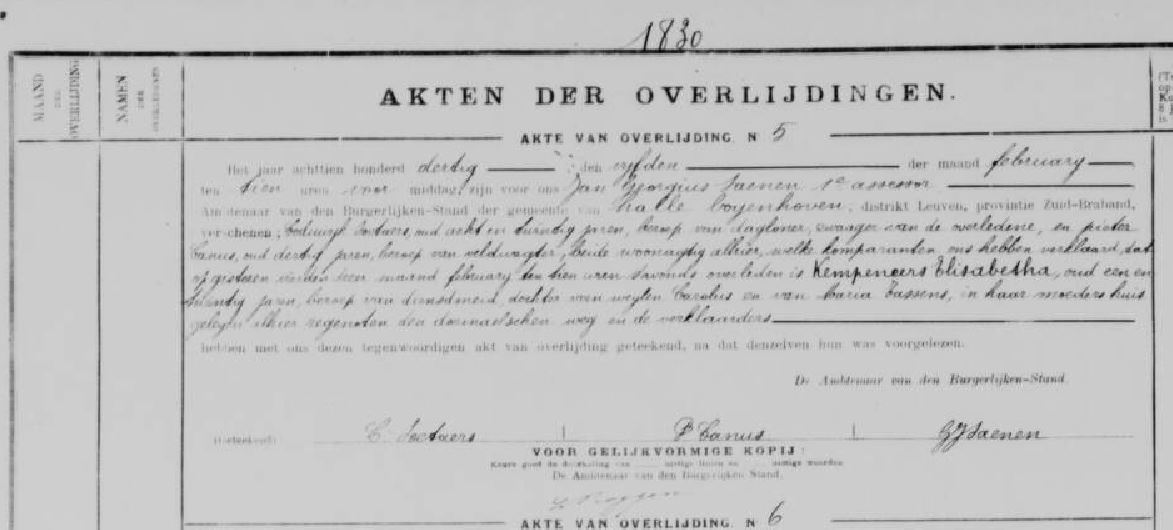 1830
MAAND DER OVERLIJDING
NAMEN DER
AKTEN DER OVERLIJDINGEN.
AKTE VAN OVERLIJDING. N 5
Het jaar achttien honderd dertig den vyfden der maand february
ten tien uren voor middag, zijn voor ons Jan Georgius Saenen 1e assessor
Ambtenaar van den Burgerlijken-Stand der gemeente van Halle Boyenhoven, distrikt Leuven, provintie Zuid-Braband,
verschenen, oud acht en twintig jaren, beroep van dagloner, zwager van de overledene, en pieter
Canus, oud dertig jaren, beroep van veldwagter, beide woonagtig alhier, welke komparanten ons hebben verklaard, dat
op gisteren vierden dezer maand february ten tien uren savonds overleden is Kempeneers Elisabetha, oud een en
twintig jaren, beroep van dienstmeid, dochter van weylen Carolus en van Maria Tassens, in haar moeders huis
gelegen alhier regenoten den dormaelschen weg en de verklaarders
hebben met ons dezen tegenwoordigen akt van overlijding geteekend, na dat denzelven hun was voorgelezen.
De Ambtenaar van den Burgerlijken-Stand.
(Geteekend) C. Sectaers P Canus GJ Saenen
VOOR GELIJKVORMIGE KOPIJ:
De Ambtenaar van den Burgerlijken Stand,
AKTE VAN OVERLIJDING. N 6